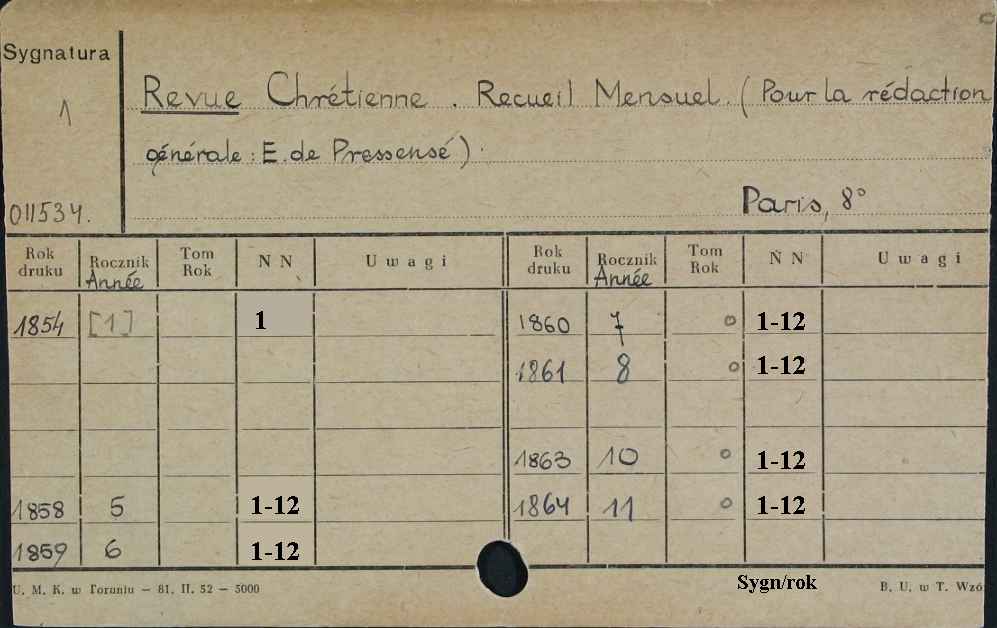 Sygnatura
1
011534.
Revue Chrétienne. Recueil Mensuel. (Pour la rédaction
générale: E. de Pressensé).
Paris, 8°
Rok druku | Rocznik Année | Tom Rok | N N | Uwagi | Rok druku | Rocznik Année | Tom Rok | N N | Uwagi
1854 | [1] | | 1 | | 1860 | 7 | o | 1-12
| | | | | 1861 | 8 | o | 1-12
| | | | | 1863 | 10 | o | 1-12
1858 | 5 | | 1-12 | | 1864 | 11 | o | 1-12
1859 | 6 | | 1-12
U. M. K. w Toruniu — 81. II. 52 — 5000
Sygn/rok
B. U. w T. Wzó